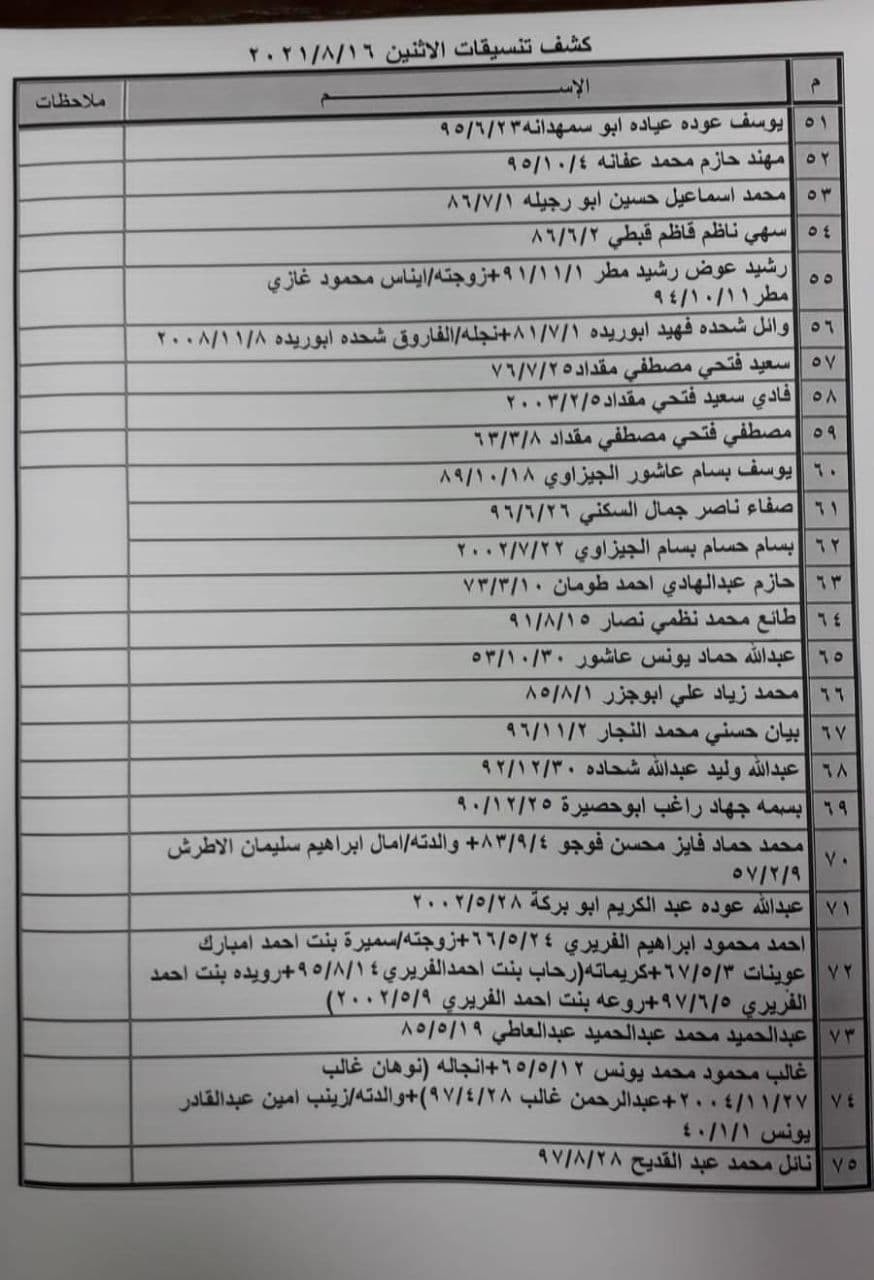 كشف تنسيقات الاثنين ٢٠٢١/٨/١٦
م الإســـــــــم ملاحظات
٥١ يوسف عوده عياده ابو سمهدانه٩٥/٦/٢٣
٥٢ مهند حازم محمد عفانه ٩٥/١٠/٤
٥٣ محمد اسماعيل حسين ابو رجيله ٨٦/٧/١
٥٤ سهي ناظم قاظم قبطي ٨٦/٦/٢
٥٥ رشيد عوض رشيد مطر ٩١/١١/١+زوجته/ايناس محمود غازي
مطر٩٤/١٠/١١
٥٦ وائل شحده فهيد ابوريده ٨١/٧/١+نجله/الفاروق شحده ابوريده ٢٠٠٨/١١/٨
٥٧ سعيد فتحي مصطفي مقداد٧٦/٧/٢٥
٥٨ فادي سعيد فتحي مقداد٢٠٠٣/٢/٥
٥٩ مصطفي فتحي مصطفي مقداد ٦٣/٣/٨
٦٠ يوسف بسام عاشور الجيزاوي ٨٩/١٠/١٨
٦١ صفاء ناصر جمال السكني ٩٦/٦/٢٦
٦٢ بسام حسام بسام الجيزاوي ٢٠٠٢/٧/٢٢
٦٣ حازم عبدالهادي احمد طومان ٧٣/٣/١٠
٦٤ طائع محمد نظمي نصار ٩١/٨/١٥
٦٥ عبدالله حماد يونس عاشور ٥٣/١٠/٣٠
٦٦ محمد زياد علي ابوجزر ٨٥/٨/١
٦٧ بيان حسني محمد النجار ٩٦/١١/٢
٦٨ عبدالله وليد عبدالله شحاده ٩٢/١٢/٣٠
٦٩ بسمه جهاد راغب ابوحصيرة ٩٠/١٢/٢٥
٧٠ محمد حماد فايز محسن فوجو ٨٣/٩/٤+ والدته/امال ابراهيم سليمان الاطرش
٥٧/٢/٩
٧١ عبدالله عوده عبد الكريم ابو بركة ٢٠٠٢/٥/٢٨
٧٢ احمد محمود ابراهيم الفريري ٦٦/٥/٢٤+زوجته/سميرة بنت احمد امبارك
عوينات ٦٧/٥/٣+كريماته(رحاب بنت احمدالفريري٩٥/٨/١٤+رويده بنت احمد
الفريري ٩٧/٦/٥+روعه بنت احمد الفريري ٢٠٠٢/٥/٩)
٧٣ عبدالحميد محمد عبدالحميد عبدالعاطي ٨٥/٥/١٩
٧٤ غالب محمود محمد يونس ٦٥/٥/١٢+انجاله (نوهان غالب
٢٠٠٤/١١/٢٧+عبدالرحمن غالب ٩٧/٤/٢٨)+والدته/زينب امين عبدالقادر
يونس ٤٠/١/١
٧٥ نائل محمد عبد القديح ٩٧/٨/٢٨